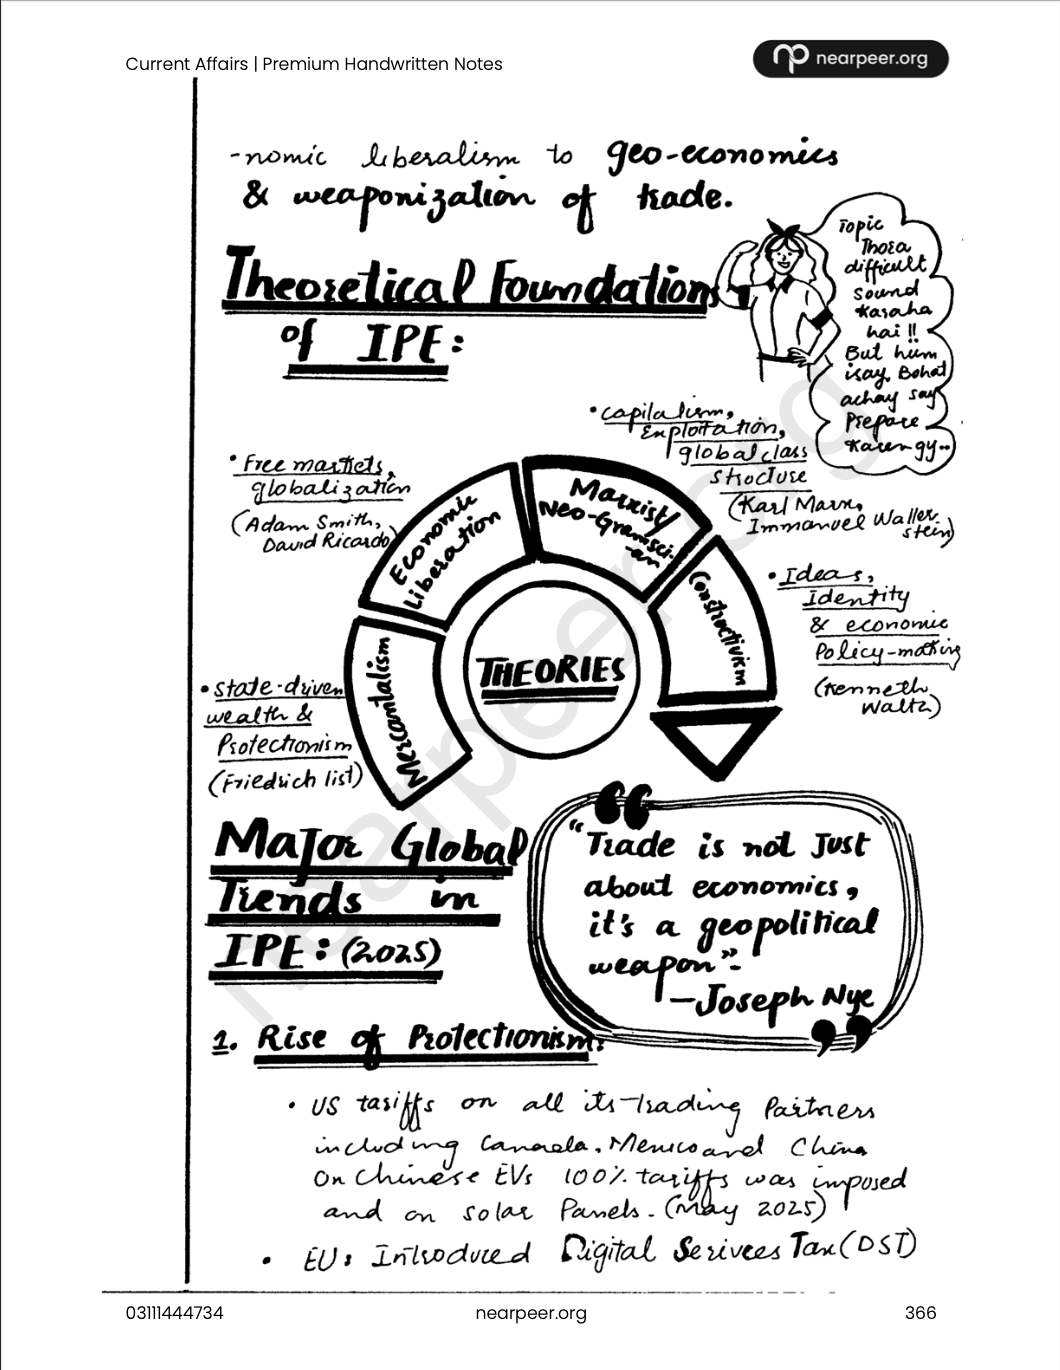 Current Affairs | Premium Handwritten Notes
nearpeer.org
-nomic liberalism to geo-economics
& weaponization of trade.
Theoretical Foundations
of IPE:
Topic
Thora
difficult
sound
karaha
hai !!
But hum
isay Bohat
achay say
Prepare
Karen gy..
• capitalism,
Exploitation,
global class
structure
(Karl Marx,
Immanuel Waller-
stein)
• Free markets,
globalization
(Adam Smith,
David Ricardo)
Economic
Liberation
Marxist/
Neo-Gramsci-
-an
Constructivism
• Ideas,
Identity
& economic
Policy-making
(Kenneth
Waltz)
THEORIES
Mercantalism
• state-driven
wealth &
Protectionism
(Friedrich list)
Major Global
Trends in
IPE: (2025)
"Trade is not Just
about economics,
it's a geopolitical
weapon".
—Joseph Nye
1. Rise of Protectionism:
• US tariffs on all its trading Partners
including Canada, Mexico and China
On Chinese EVs 100% tariffs was imposed
and on solar Panels. (May 2025)
• EU: Introduced Digital Serivces Tax (DST)
03111444734
nearpeer.org
366
nearpeer.org